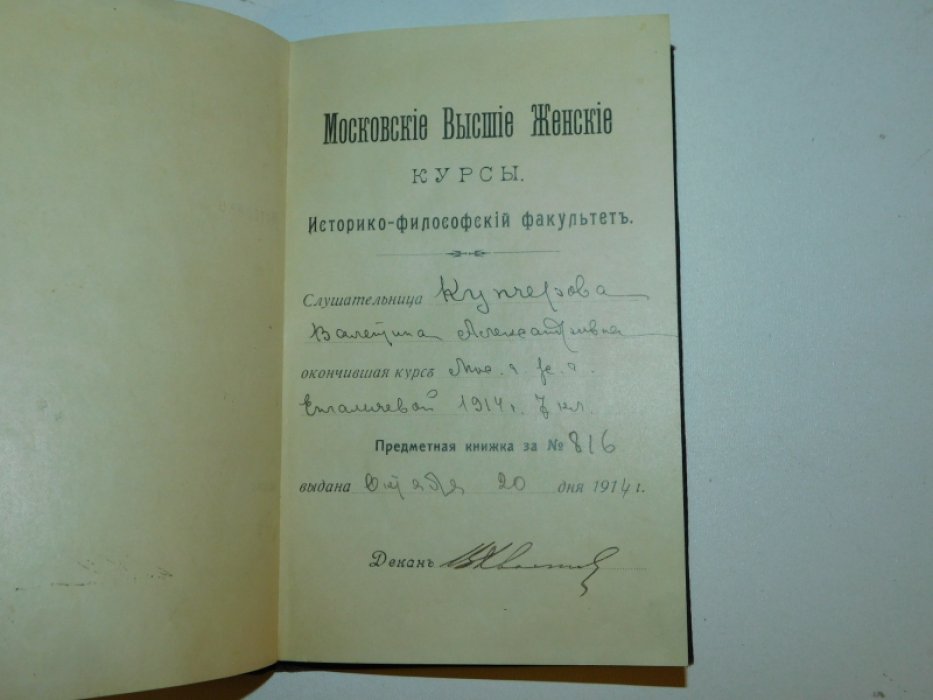 Московскіе Высшіе Женскіе
КУРСЫ.
Историко-философскій факультетъ.
Слушательница Купчерова
Валентина Александровна
окончившая курсъ Мос.
Енгалычевой 1914 г. 7 кл.
Предметная книжка за № 816
выдана Октября 20 дня 1914 г.
Деканъ